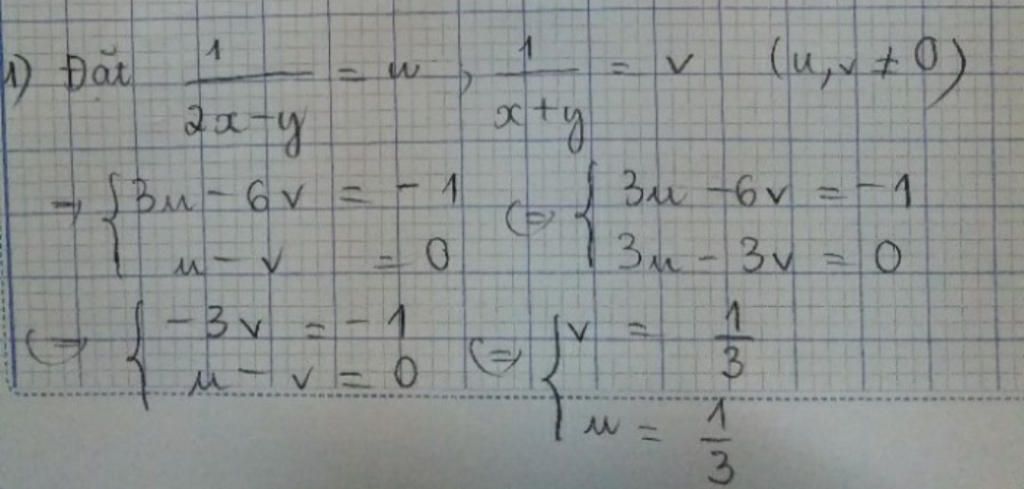 1) Đặt 1/(2x-y) = u, 1/(x+y) = v (u, v ≠ 0)
→ { 3u - 6v = -1 ; u - v = 0 (=) { 3u - 6v = -1 ; 3u - 3v = 0
(=) { -3v = -1 ; u - v = 0 (=) { v = 1/3 ; u = 1/3